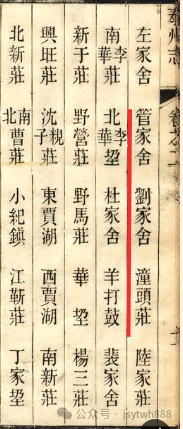 左家舍 管家舍 劉家舍 潼頭莊 陸家莊
南李華莊 北李華垈 杜家舍 羊打鼓 裴家舍
新于莊 野營莊 野馬莊 華垈 楊三莊
興旺莊 沈子莊 東賈湖 西賈湖 南新莊
北新莊 南北曹莊 小紀鎮 江靳莊 丁家垈
公众号 · jsytwh888